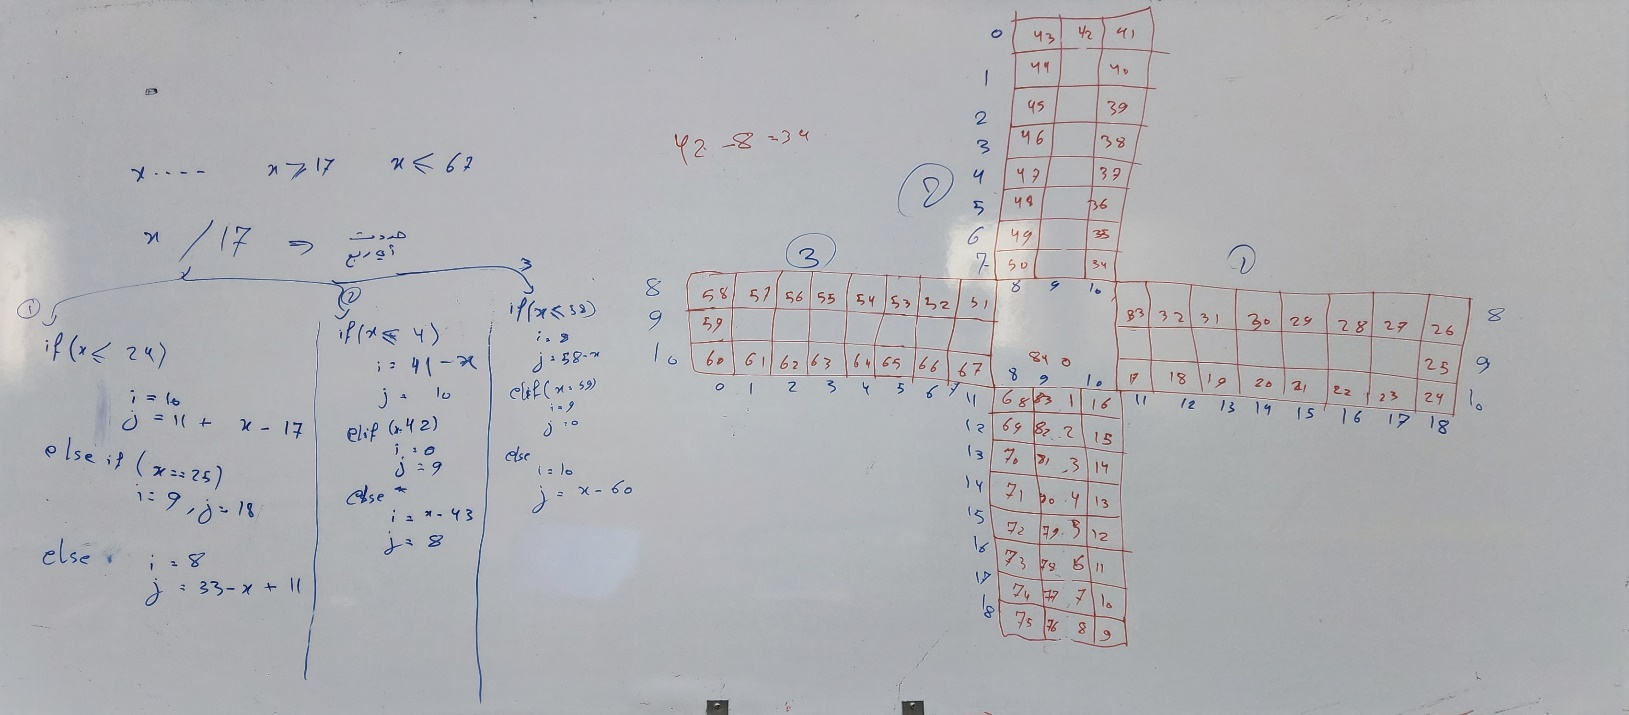 x .... x ⩾ 17 x ⩽ 67
x / 17 ⇒
1
if (x ⩽ 24)
i = 10
j = 11 + x - 17
else if (x == 25)
i = 9, j = 18
else i = 8
j = 33 - x + 11
2
if (x ⩽ 4)
i = 41 - x
j = 10
elif (x 42)
i = 0
j = 9
else
i = x - 43
j = 8
3
if (x ⩽ 58)
i = 8
j = 58 - x
elif (x = 59)
i = 9
j = 0
else
i = 10
j = x - 60
42 - 8 = 34
0 43 42 41
1 44 40
2 45 39
3 46 38
4 47 37
5 48 36
6 49 35
7 50 34
8 9 10
3
8 58 57 56 55 54 53 52 51
9 59
10 60 61 62 63 64 65 66 67
0 1 2 3 4 5 6 7
33 32 31 30 29 28 27 26 8
25 9
18 19 20 21 22 23 24 10
11 12 13 14 15 16 17 18
84 0
8 9 10
11 68 83 1 16
12 69 82 2 15
13 70 81 3 14
14 71 80 4 13
15 72 79 5 12
16 73 78 6 11
17 74 77 7 10
18 75 76 8 9